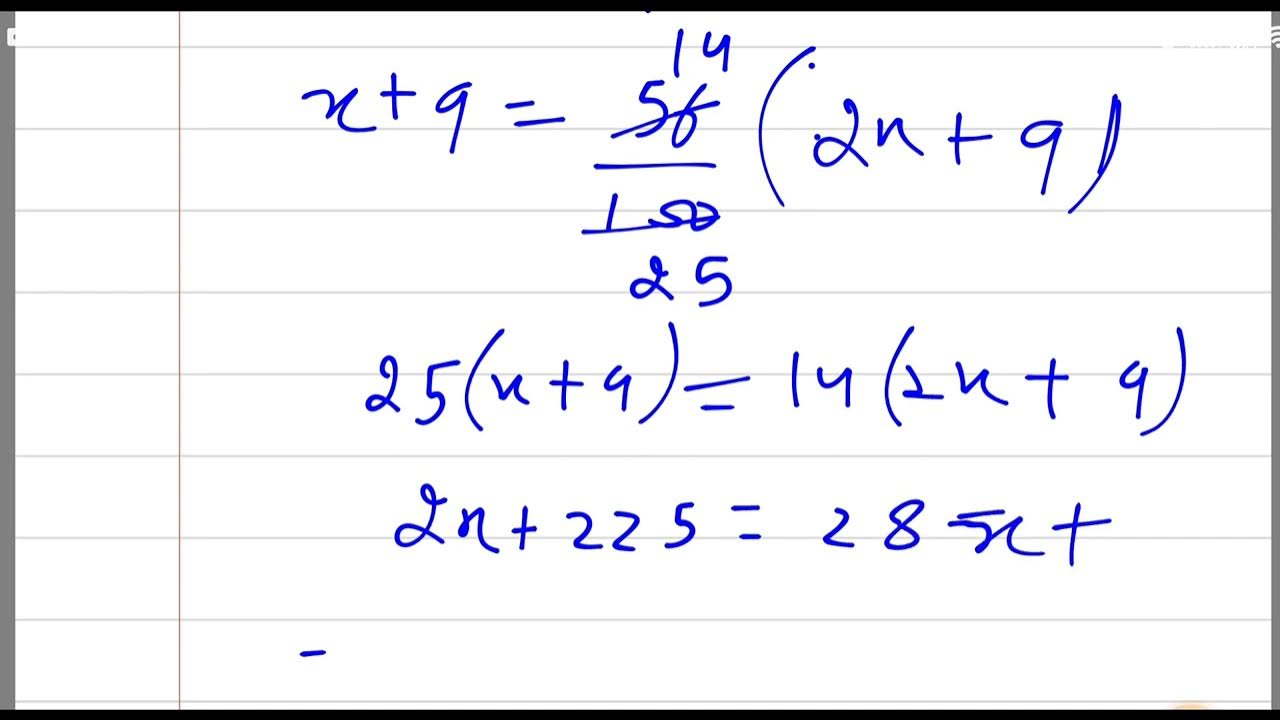 x + 9 = 14 56/100 25 (2x + 9)
25(x + 9) = 14(2x + 9)
2x + 225 = 28x +
-